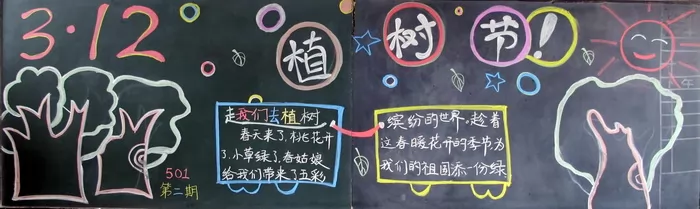 3·12
植树节!
走我们去植树
春天来了,桃花开
了,小草绿了,春姑娘
给我们带来了五彩
缤纷的世界。趁着
这春暖花开的季节为
我们的祖国添一份绿
501
第二期